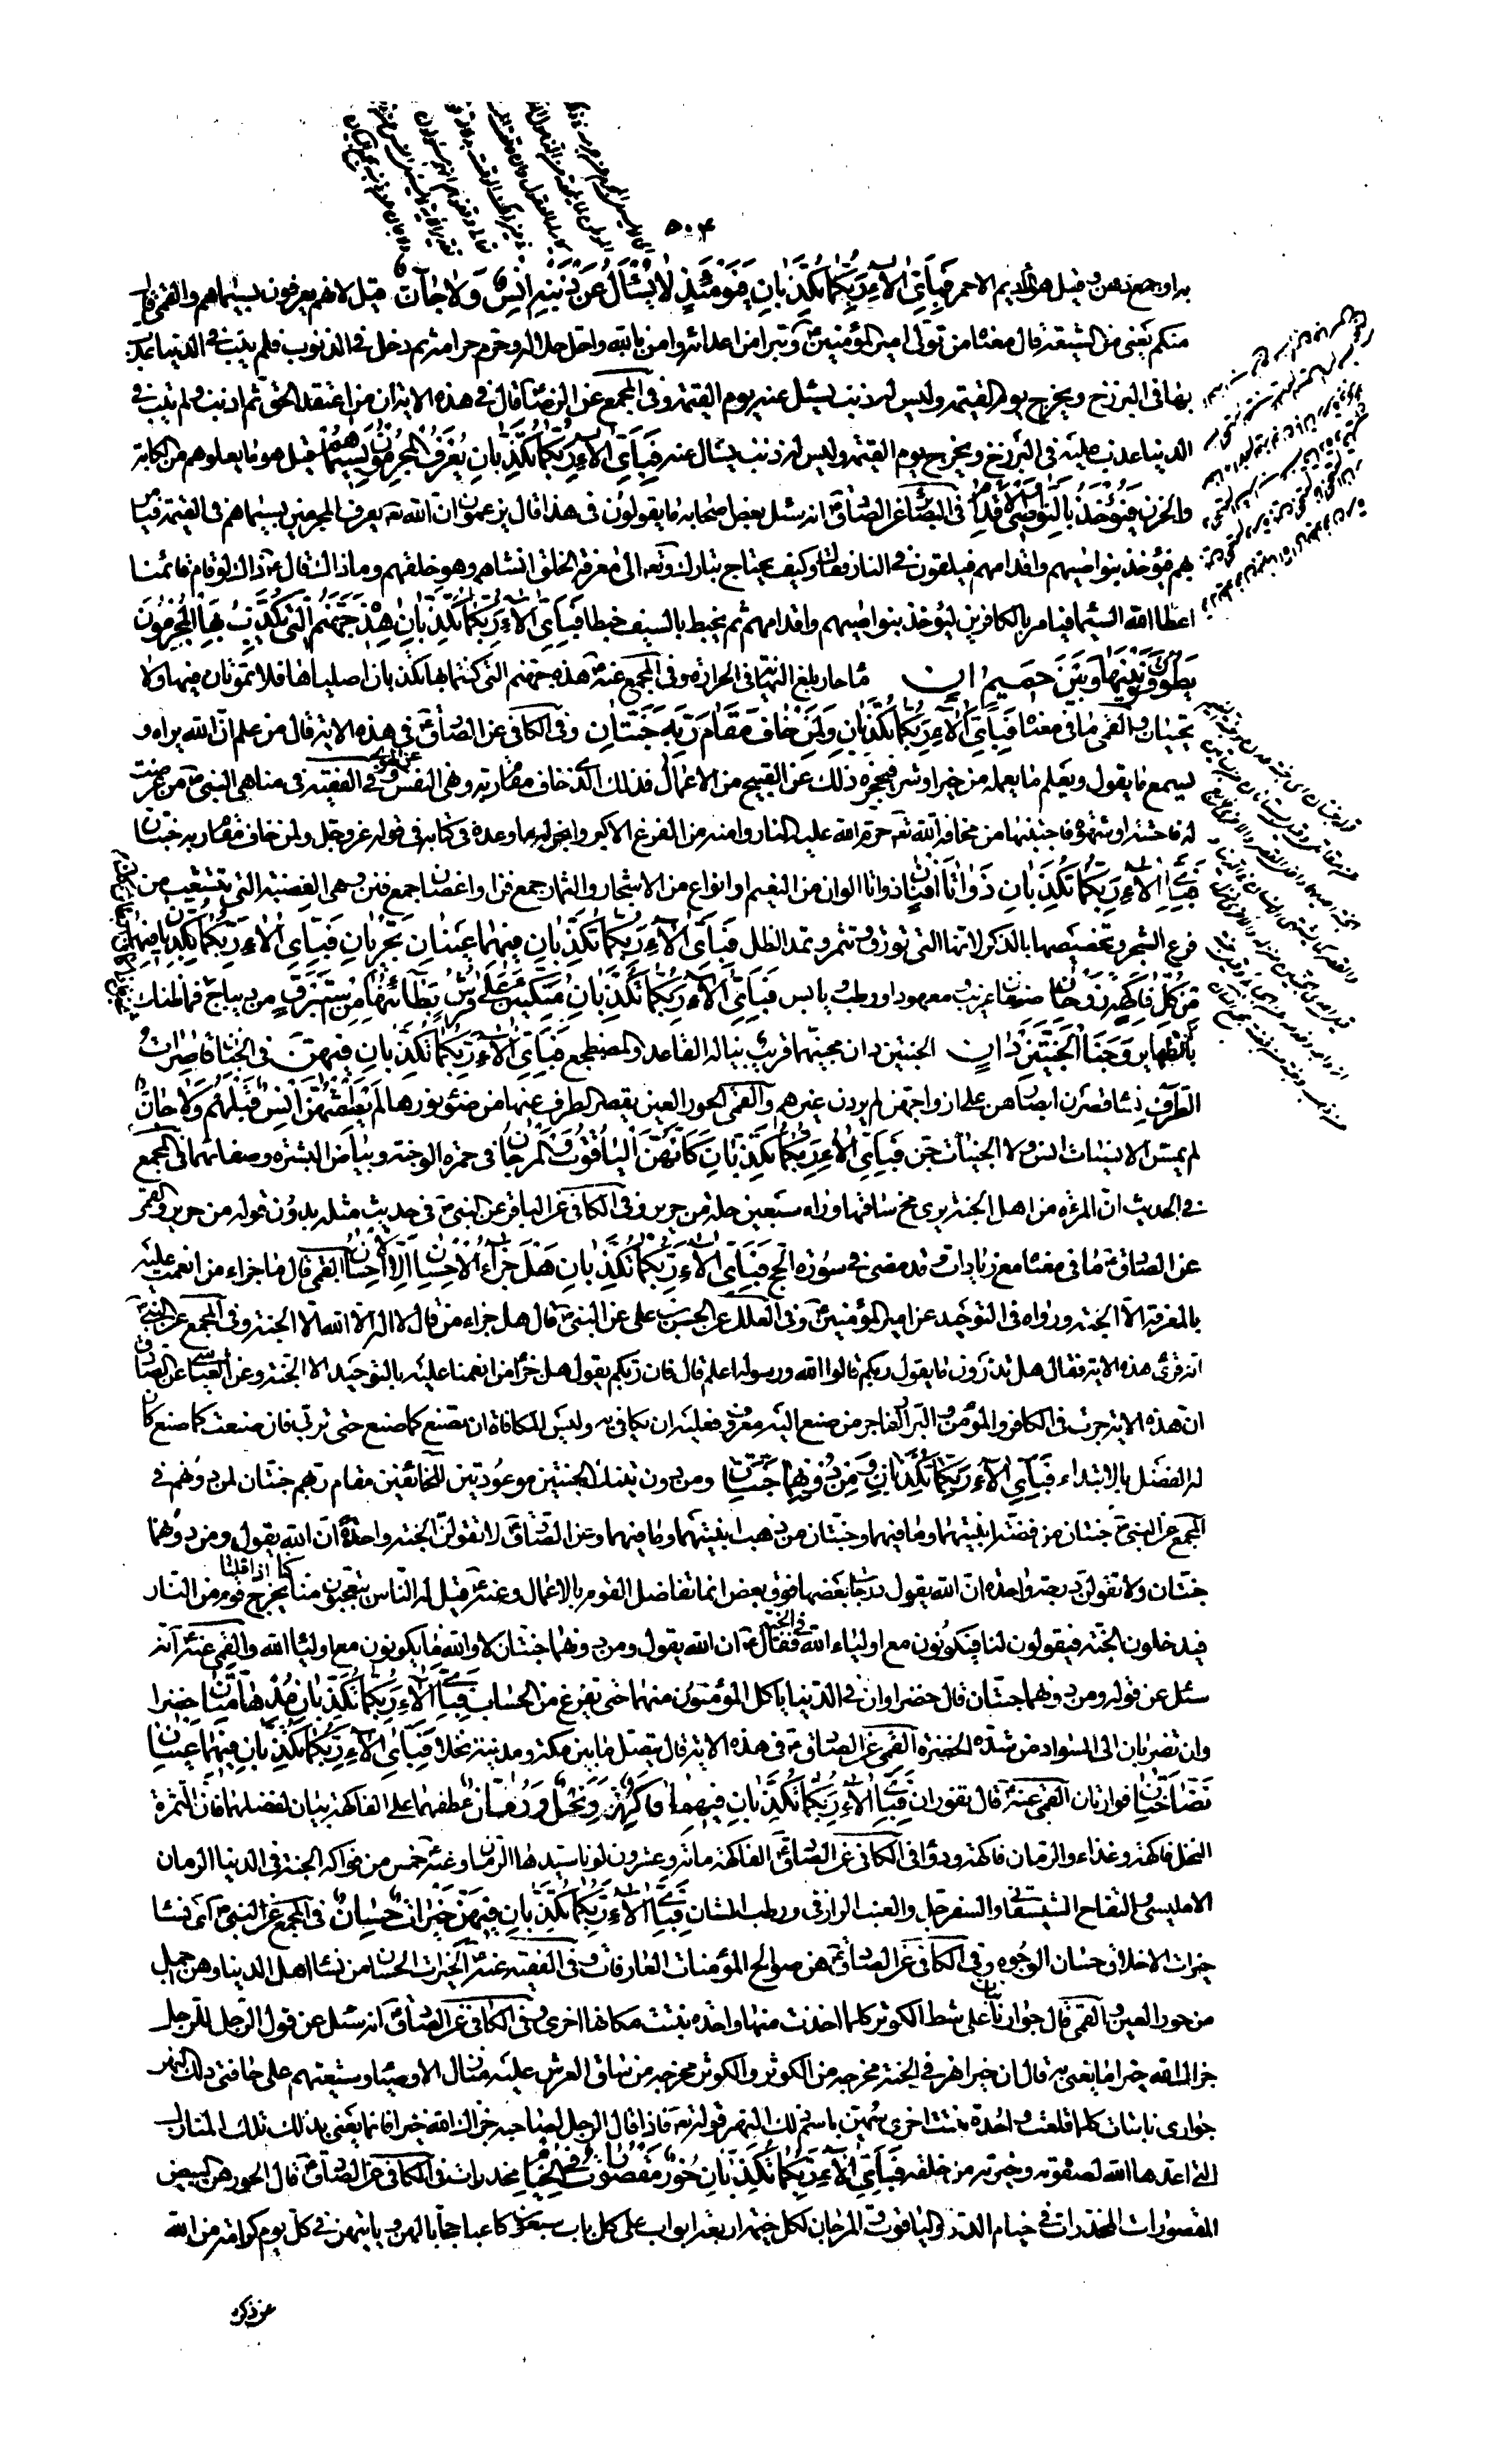 ٥٠٤
به او جمع دهن وقيل هو الاديم الاحمر فَبِاَيِّ اٰلٰاءِ رَبِّكُمٰا تُكَذِّبٰانِ فَيَوْمَئِذٍ لٰا يُسْئَلُ عَنْ ذَنْبِهِ اِنْسٌ وَلٰا جٰانٌّ قيل لانهم يعرفون بسيماهم والقمى قال
منكم يعنى من الشيعة قال معناه من تولى امير المؤمنين وتبرا من اعدائه وامن بالله واحل حلاله وحرم حرامه ثم دخل فى الذنوب فلم يتب فى الدنيا عذب
بها فى البرزخ ويخرج يوم القيمة وليس له ذنب يسئل عنه يوم القيمة وفى المجمع عن الرضا قال فى هذه الاية ان من اعتقد الحق ثم اذنب ولم يتب فى
الدنيا عذب عليه فى البرزخ ويخرج يوم القيمة وليس له ذنب يسال عنه فَبِاَيِّ اٰلٰاءِ رَبِّكُمٰا تُكَذِّبٰانِ يُعْرَفُ الْمُجْرِمُونَ بِسِيمٰاهُمْ قيل هو ما يعلوهم من الكابة
والحزن فَيُؤْخَذُ بِالنَّوٰاصِي وَالْاَقْدٰامِ فى البصائر عن الصادق انه سئل بعض اصحابه ما يقولون فى هذا قال يزعمون ان الله تعه يعرف المجرمين بسيماهم فى القيمة فيامر
بهم فيؤخذ بنواصيهم واقدامهم فيلقون فى النار فقال وكيف يحتاج تبارك وتعه الى معرفة الخلق انشاهم وهو خلقهم وما ذاك قال ع ذاك لو قام قائمنا
اعطاه الله السيما فيامر بالكافرين فيؤخذ بنواصيهم واقدامهم ثم يخبط بالسيف خبطا فَبِاَيِّ اٰلٰاءِ رَبِّكُمٰا تُكَذِّبٰانِ هٰذِهِ جَهَنَّمُ الَّتِي يُكَذِّبُ بِهَا الْمُجْرِمُونَ
يَطُوفُونَ بَيْنَهٰا وَبَيْنَ حَمِيمٍ اٰنٍ ماء حار بلغ النهاية فى الحرارة وفى المجمع عنه ع هذه جهنم التى كنتما بها تكذبان اصلياها فلا تموتان فيها ولا
تحييان والقمى ما فى معناه فَبِاَيِّ اٰلٰاءِ رَبِّكُمٰا تُكَذِّبٰانِ وَلِمَنْ خٰافَ مَقٰامَ رَبِّهِ جَنَّتٰانِ وفى الكافى عن الصادق فى هذه الاية قال من علم ان الله يراه و
يسمع ما يقول ويعلم ما يعمله من خير او شر فيحجزه ذلك عن القبيح من الاعمال فذلك الذى خاف مقام ربه ونهى النفس عن الهوى وفى الفقيه فى مناهى النبى ص من عرضت
له فاحشة او شهوة فاجتنبها من مخافة الله تعه حرم الله عليه النار وامنه من الفزع الاكبر وانجز له ما وعده فى كتابه فى قوله عز وجل ولمن خاف مقام ربه جنتان
فَبِاَيِّ اٰلٰاءِ رَبِّكُمٰا تُكَذِّبٰانِ ذَوٰاتٰا اَفْنٰانٍ ذواتا الوان من النعيم او انواع من الاشجار والثمار جمع فن او اغصان جمع فنن وهى الغصنة التى يتشعب من
فرع الشجر وتخصيصها بالذكر لانها التى تورق وتثمر وتمد الظل فَبِاَيِّ اٰلٰاءِ رَبِّكُمٰا تُكَذِّبٰانِ فِيهِمٰا عَيْنٰانِ تَجْرِيٰانِ فَبِاَيِّ اٰلٰاءِ رَبِّكُمٰا تُكَذِّبٰانِ فِيهِمٰا
مِنْ كُلِّ فٰاكِهَةٍ زَوْجٰانِ صنفان غريب ومعهود او رطب ويابس فَبِاَيِّ اٰلٰاءِ رَبِّكُمٰا تُكَذِّبٰانِ مُتَّكِئِينَ عَلٰى فُرُشٍ بَطٰائِنُهٰا مِنْ اِسْتَبْرَقٍ من ديباج فما ظنك
بالظهاير وَجَنَا الْجَنَّتَيْنِ دٰانٍ الجنتين دان مجنيهما قريب يناله القاعد والمضطجع فَبِاَيِّ اٰلٰاءِ رَبِّكُمٰا تُكَذِّبٰانِ فِيهِنَّ فى الجنان قٰاصِرٰاتُ
الطَّرْفِ نساء قصرن ابصارهن على ازواجهن لم يردن غيرهم والقمى الحور العين يقصر الطرف عنها من ضوء نورها لَمْ يَطْمِثْهُنَّ اِنْسٌ قَبْلَهُمْ وَلٰا جٰانٌّ
لم يمس الانسيات انس ولا الجنيات جن فَبِاَيِّ اٰلٰاءِ رَبِّكُمٰا تُكَذِّبٰانِ كَاَنَّهُنَّ الْيٰاقُوتُ وَالْمَرْجٰانُ فى حمرة الوجنة وبياض البشرة وصفائهما فى المجمع
فى الحديث ان المرئة من اهل الجنة يرى مخ ساقها وراء سبعين حلة من حرير وفى الكافى عن الباقر عن النبى ص فى حديث مثله بدون قوله من حرير والقمى
عن الصادق ع ما فى معناه مع زيادات قد مضى فى سورة الحج فَبِاَيِّ اٰلٰاءِ رَبِّكُمٰا تُكَذِّبٰانِ هَلْ جَزٰاءُ الْاِحْسٰانِ اِلَّا الْاِحْسٰانُ القمى قال ما جزاء من انعمت عليه
بالمعرفة الا الجنة ورواه فى التوحيد عن امير المؤمنين ع وفى العلل عن الحسن بن على عن النبى ص قال هل جزاء من قال لا اله الا الله الا الجنة وفى المجمع عن النبى ص
انه قرئ هذه الاية فقال هل تدرون ما يقول ربكم قالوا الله ورسوله اعلم قال فان ربكم يقول هل جزاء من انعمنا عليه بالتوحيد الا الجنة وعن العياشى عن الصادق
ان هذه الاية جرت فى الكافر والمؤمن والبر والفاجر من صنع اليه معروف فعليه ان يكافى به وليس المكافاة ان تصنع كما صنع حتى تربى فان صنعت كما صنع كان
له الفضل بالابتداء فَبِاَيِّ اٰلٰاءِ رَبِّكُمٰا تُكَذِّبٰانِ وَمِنْ دُونِهِمٰا جَنَّتٰانِ ومن دون تينك الجنتين موعودتين للخائفين مقام ربهم جنتان لمن دونهم فى
المجمع عن النبى ص جنتان من فضة ابنيتهما وما فيهما وجنتان من ذهب ابنيتهما وما فيهما وعن الصادق لا تقولن الجنة واحدة ان الله يقول ومن دونهما
جنتان ولا تقولن درجة واحدة ان الله يقول درجات بعضها فوق بعض انما تفاضل القوم بالاعمال وعنه ع قيل له الناس يتعجبون منا اذا قلنا يخرج قوم من النار
فيدخلون الجنة فيقولون لنا فيكونون مع اولياء الله فى الجنة فقال ع ان الله يقول ومن دونهما جنتان لا والله ما يكونون مع اولياء الله والقمى عنه ع انه
سئل عن قوله ومن دونهما جنتان قال خضراوان فى الدنيا ياكل المؤمنون منهما حتى يفرغ من الحساب فَبِاَيِّ اٰلٰاءِ رَبِّكُمٰا تُكَذِّبٰانِ مُدْهٰامَّتٰانِ خضرا
وان تضربان الى السواد من شدة الخضرة القمى عن الصادق ع فى هذه الاية قال يتصل ما بين مكة ومدينة نخلا فَبِاَيِّ اٰلٰاءِ رَبِّكُمٰا تُكَذِّبٰانِ فِيهِمٰا عَيْنٰانِ
نَضّٰاخَتٰانِ فوارتان القمى عنه ع قال تفوران فَبِاَيِّ اٰلٰاءِ رَبِّكُمٰا تُكَذِّبٰانِ فِيهِمٰا فٰاكِهَةٌ وَنَخْلٌ وَرُمّٰانٌ عطفهما على الفاكهة بيان لفضلهما فان ثمرة
النخل فاكهة وغذاء والرمان فاكهة ودواء فى الكافى عن الصادق الفاكهة مائة وعشرون لونا سيدها الرمان وعنه ع خمس من فواكه الجنة فى الدنيا الرمان
الامليسى والتفاح الشيسقان والسفرجل والعنب الرازقى ورطب المشان فَبِاَيِّ اٰلٰاءِ رَبِّكُمٰا تُكَذِّبٰانِ فِيهِنَّ خَيْرٰاتٌ حِسٰانٌ فى المجمع عن النبى ص اى نساء
خيرات الاخلاق حسان الوجوه وفى الكافى عن الصادق ع هن صوالح المؤمنات العارفات وفى الفقيه عنه ع الخيرات الحسان من نساء اهل الدنيا وهن اجمل
من حور العين والقمى قال جوار نابتات على شط الكوثر كلما اخذت منها واحدة نبتت مكانها اخرى وفى الكافى عن الصادق ع انه سئل عن قول الرجل للرجل
جزاك الله خيرا ما يعنى به قال ان خيرا نهر فى الجنة مخرجه من الكوثر والكوثر مخرجه من ساق العرش عليه منازل الاوصياء وشيعتهم على حافتى ذلك النهر
جوارى نابتات كلما قلعت واحدة نبتت اخرى سمين باسم ذلك النهر قوله تعه فاذا قال الرجل لصاحبه جزاك الله خيرا فانما يعنى بذلك تلك المنازل
التى اعدها الله لصفوته وخيرته من خلقه فَبِاَيِّ اٰلٰاءِ رَبِّكُمٰا تُكَذِّبٰانِ حُورٌ مَقْصُورٰاتٌ فِي الْخِيٰامِ مخدرات فى الكافى عن الصادق ع قال الحور هن البيض
المقصورات المخدرات فى خيام الدر والياقوت والمرجان لكل خيمة اربعة ابواب على كل باب سبعون كاعبا حجابا لهن وياتيهن فى كل يوم كرامة من الله
عز ذكره